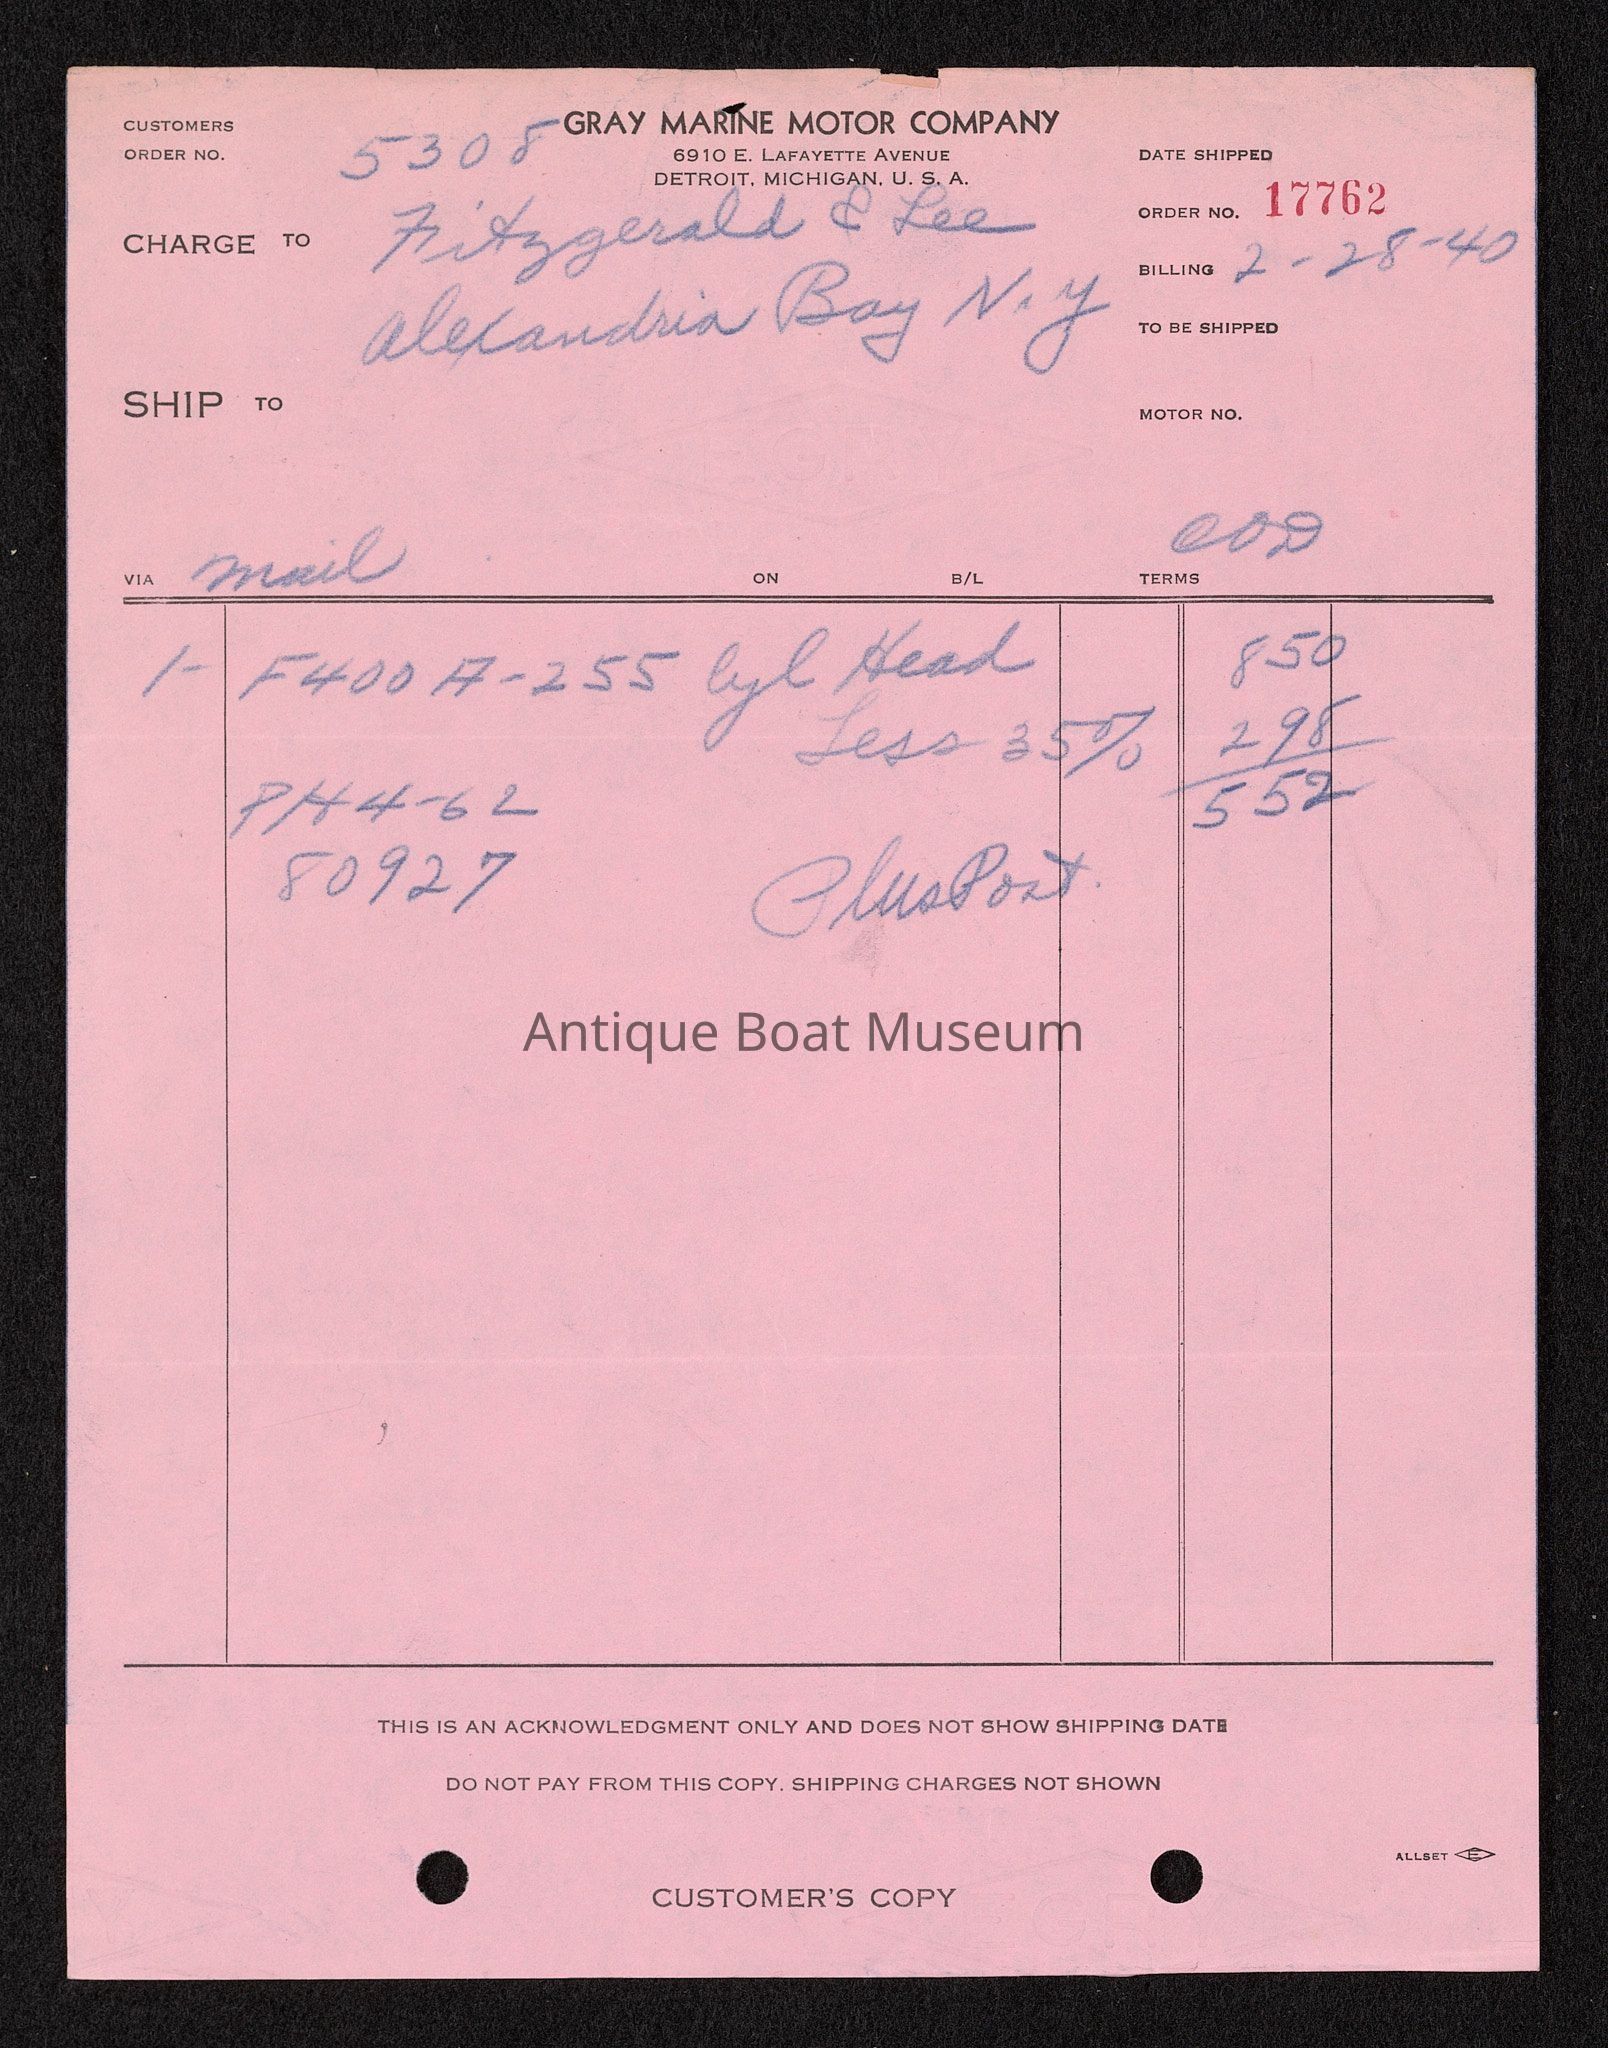 CUSTOMERS
ORDER NO. 5308
GRAY MARINE MOTOR COMPANY
6910 E. LAFAYETTE AVENUE
DETROIT, MICHIGAN, U. S. A.
DATE SHIPPED
ORDER NO. 17762
CHARGE TO Fitzgerald & Lee
Alexandria Bay N.Y
BILLING 2-28-40
TO BE SHIPPED
SHIP TO
MOTOR NO.
VIA mail ON B/L TERMS COD
1- F400 A-255 Cyl Head 850
Less 35% 298
552
PH4-62
80927 Plus Post.
Antique Boat Museum
THIS IS AN ACKNOWLEDGMENT ONLY AND DOES NOT SHOW SHIPPING DATE
DO NOT PAY FROM THIS COPY. SHIPPING CHARGES NOT SHOWN
ALLSET E
CUSTOMER'S COPY